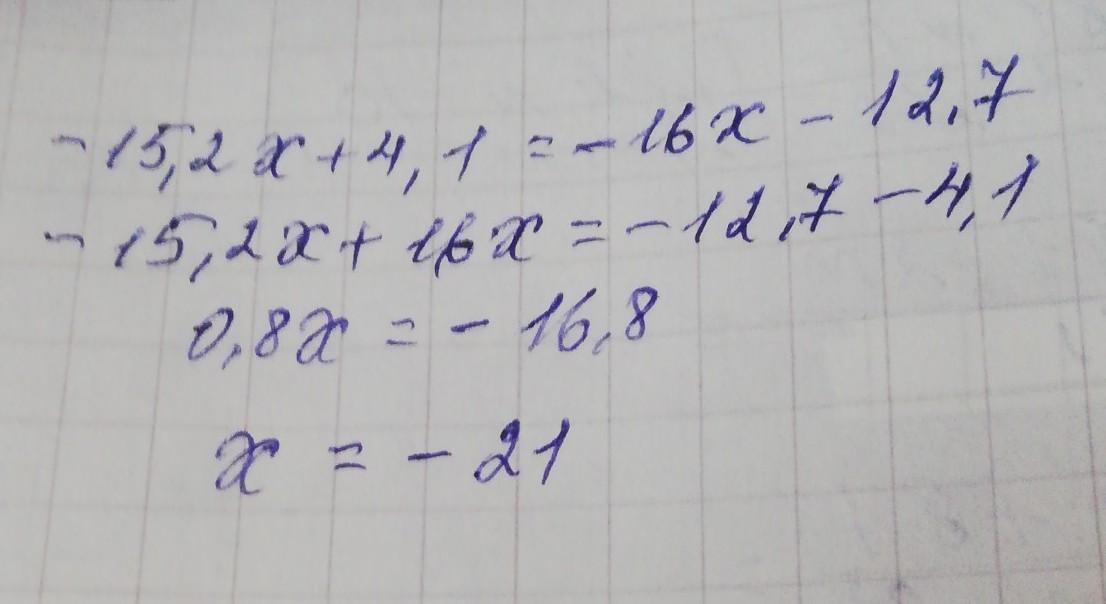 -15,2x+4,1=-16x-12,7
-15,2x+16x=-12,7-4,1
0,8x=-16,8
x=-21